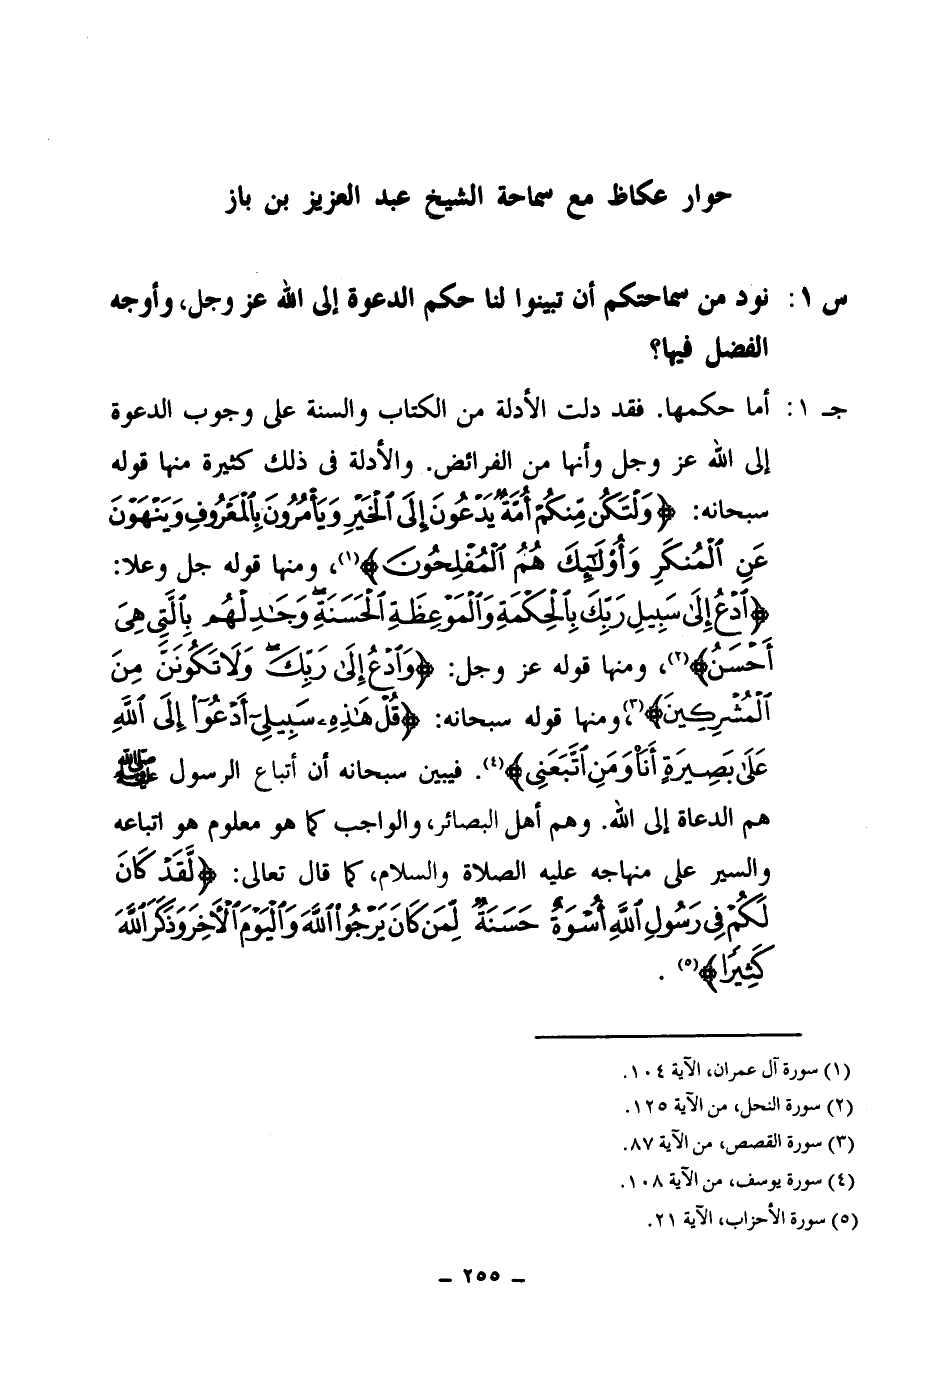 حوار عكاظ مع سماحة الشيخ عبد العزيز بن باز
س ١: نود من سماحتكم أن تبينوا لنا حكم الدعوة إلى الله عز وجل، وأوجه
الفضل فيها؟
جـ ١: أما حكمها. فقد دلت الأدلة من الكتاب والسنة على وجوب الدعوة
إلى الله عز وجل وأنها من الفرائض. والأدلة فى ذلك كثيرة منها قوله
سبحانه: ﴿وَلْتَكُن مِّنكُمْ أُمَّةٌ يَدْعُونَ إِلَى ٱلْخَيْرِ وَيَأْمُرُونَ بِٱلْمَعْرُوفِ وَيَنْهَوْنَ
عَنِ ٱلْمُنكَرِ وَأُوْلَٰٓئِكَ هُمُ ٱلْمُفْلِحُونَ﴾(١)، ومنها قوله جل وعلا:
﴿ٱدْعُ إِلَىٰ سَبِيلِ رَبِّكَ بِٱلْحِكْمَةِ وَٱلْمَوْعِظَةِ ٱلْحَسَنَةِۖ وَجَٰدِلْهُم بِٱلَّتِى هِىَ
أَحْسَنُ﴾(٢)، ومنها قوله عز وجل: ﴿وَٱدْعُ إِلَىٰ رَبِّكَۖ وَلَا تَكُونَنَّ مِنَ
ٱلْمُشْرِكِينَ﴾(٣)، ومنها قوله سبحانه: ﴿قُلْ هَٰذِهِۦ سَبِيلِىٓ أَدْعُوٓاْ إِلَى ٱللَّهِ
عَلَىٰ بَصِيرَةٍ أَنَا۠ وَمَنِ ٱتَّبَعَنِى﴾(٤). فيبين سبحانه أن أتباع الرسول ﷺ
هم الدعاة إلى الله. وهم أهل البصائر، والواجب كما هو معلوم هو اتباعه
والسير على منهاجه عليه الصلاة والسلام، كما قال تعالى: ﴿لَّقَدْ كَانَ
لَكُمْ فِى رَسُولِ ٱللَّهِ أُسْوَةٌ حَسَنَةٌ لِّمَن كَانَ يَرْجُواْ ٱللَّهَ وَٱلْيَوْمَ ٱلْأَخِرَ وَذَكَرَ ٱللَّهَ
كَثِيرًا﴾(٥) .
(١) سورة آل عمران، الآية ١٠٤.
(٢) سورة النحل، من الآية ١٢٥.
(٣) سورة القصص، من الآية ٨٧.
(٤) سورة يوسف، من الآية ١٠٨.
(٥) سورة الأحزاب، الآية ٢١.
– ٢٥٥ –